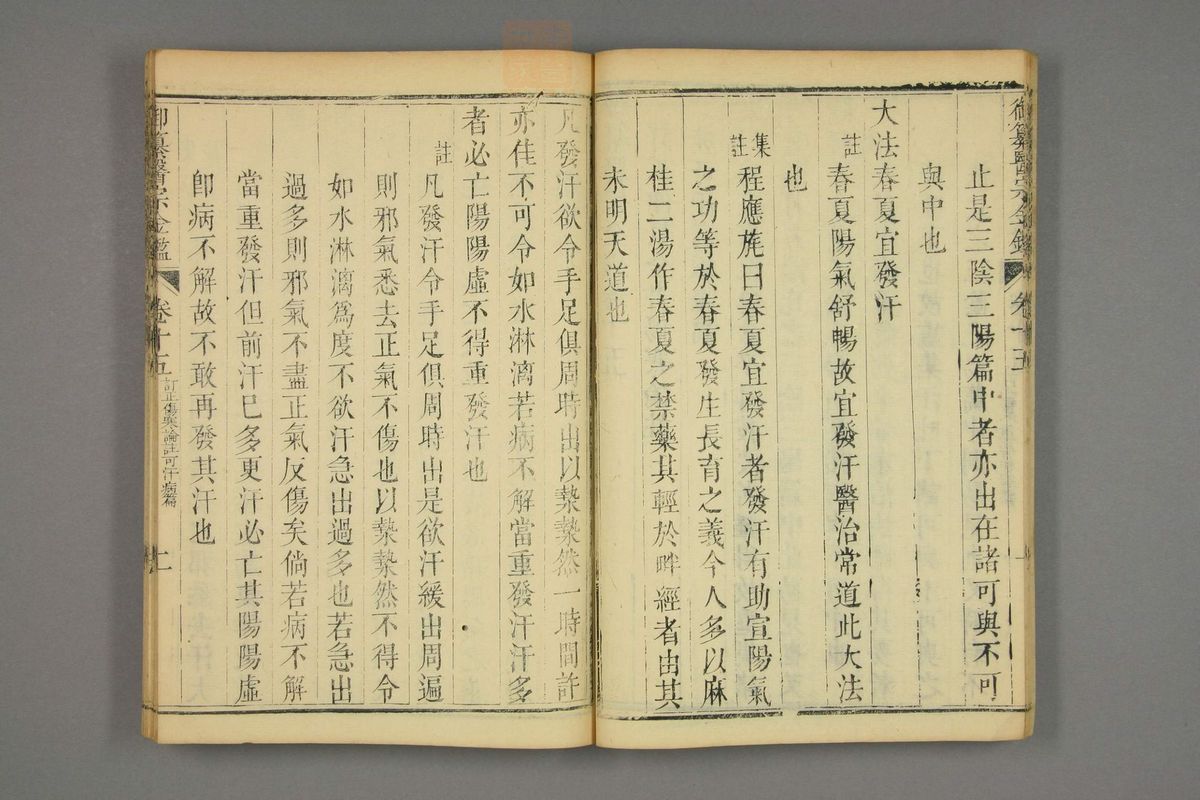 御纂醫宗金鑑 卷十五
止是三陰三陽篇中者亦出在諸可與不可
與中也
大法春夏宜發汗
註春夏陽氣舒暢故宜發汗醫治常道此大法
也
集註程應旄曰春夏宜發汗者發汗有助宣陽氣
之功等於春夏發生長育之義今人多以麻
桂二湯作春夏之禁藥其輕於畔經者由其
未明天道也
凡發汗欲令手足俱周時出以漐漐然一時間許
亦佳不可令如水淋漓若病不解當重發汗汗多
者必亡陽陽虛不得重發汗也
註凡發汗令手足俱周時出是欲汗緩出周遍
則邪氣悉去正氣不傷也以漐漐然不得令
如水淋漓爲度不欲汗急出過多也若急出
過多則邪氣不盡正氣反傷矣倘若病不解
當重發汗但前汗已多更汗必亡其陽陽虛
卽病不解故不敢再發其汗也
御纂醫宗金鑑 卷十五 訂正傷寒論註可汗病篇